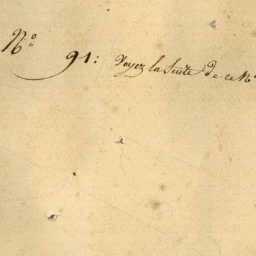 N.º 91: Voyez la Suite de ce N.º